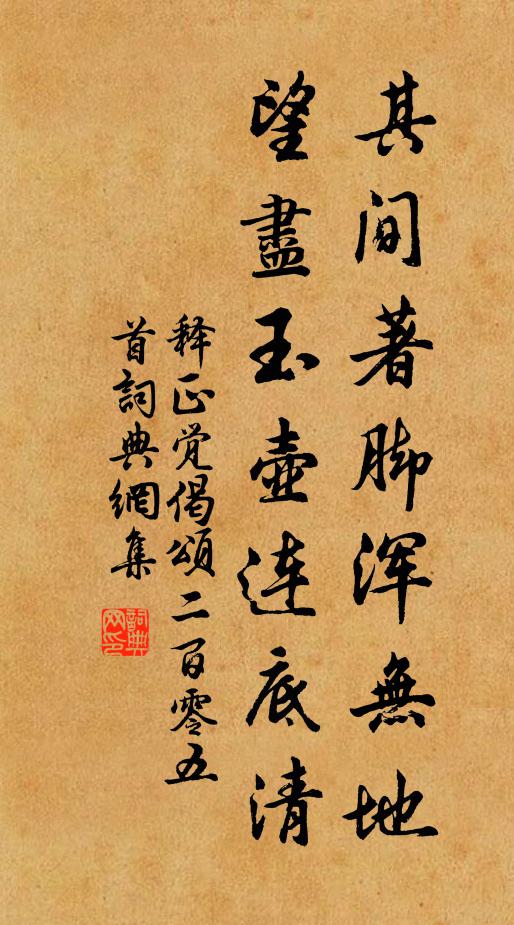 其间著脚浑無地
望盡玉壺连底清
释正觉偈頌二百零五
首詞典網集
詞典网印